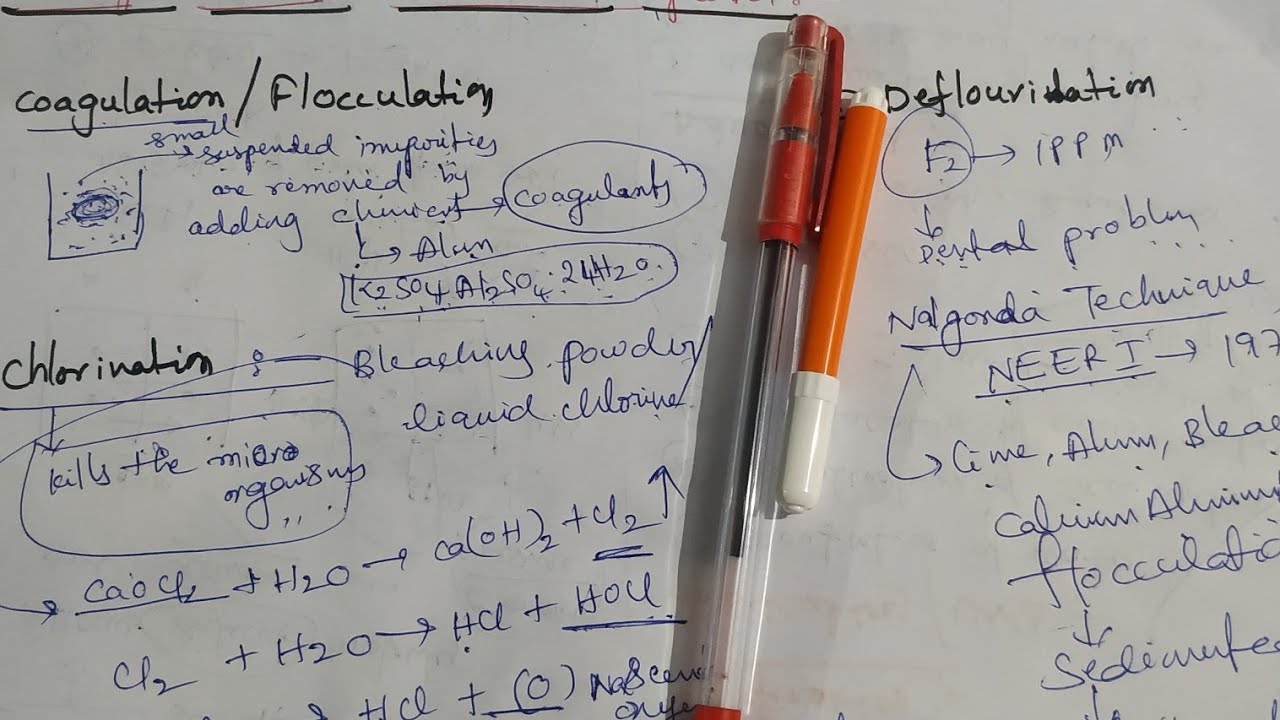 Coagulation / Flocculation
small
suspended impurities
are removed by
adding chemical → coagulants
↳ Alum
K2SO4 Al2SO4 . 24H2O.
Chlorination : Bleaching powder/
liquid chlorine
kills the micro
organisms
CaOCl2 + H2O → Ca(OH)2 + Cl2 ↑
Cl2 + H2O → HCl + HOCl
HCl + (O)
Deflouridation
F2 → 1PPM
Dental problem
Nalgonda Technique
NEERI → 197
Lime, Alum, Bleac
Calcium Alumini
flocculatio
Sedimente